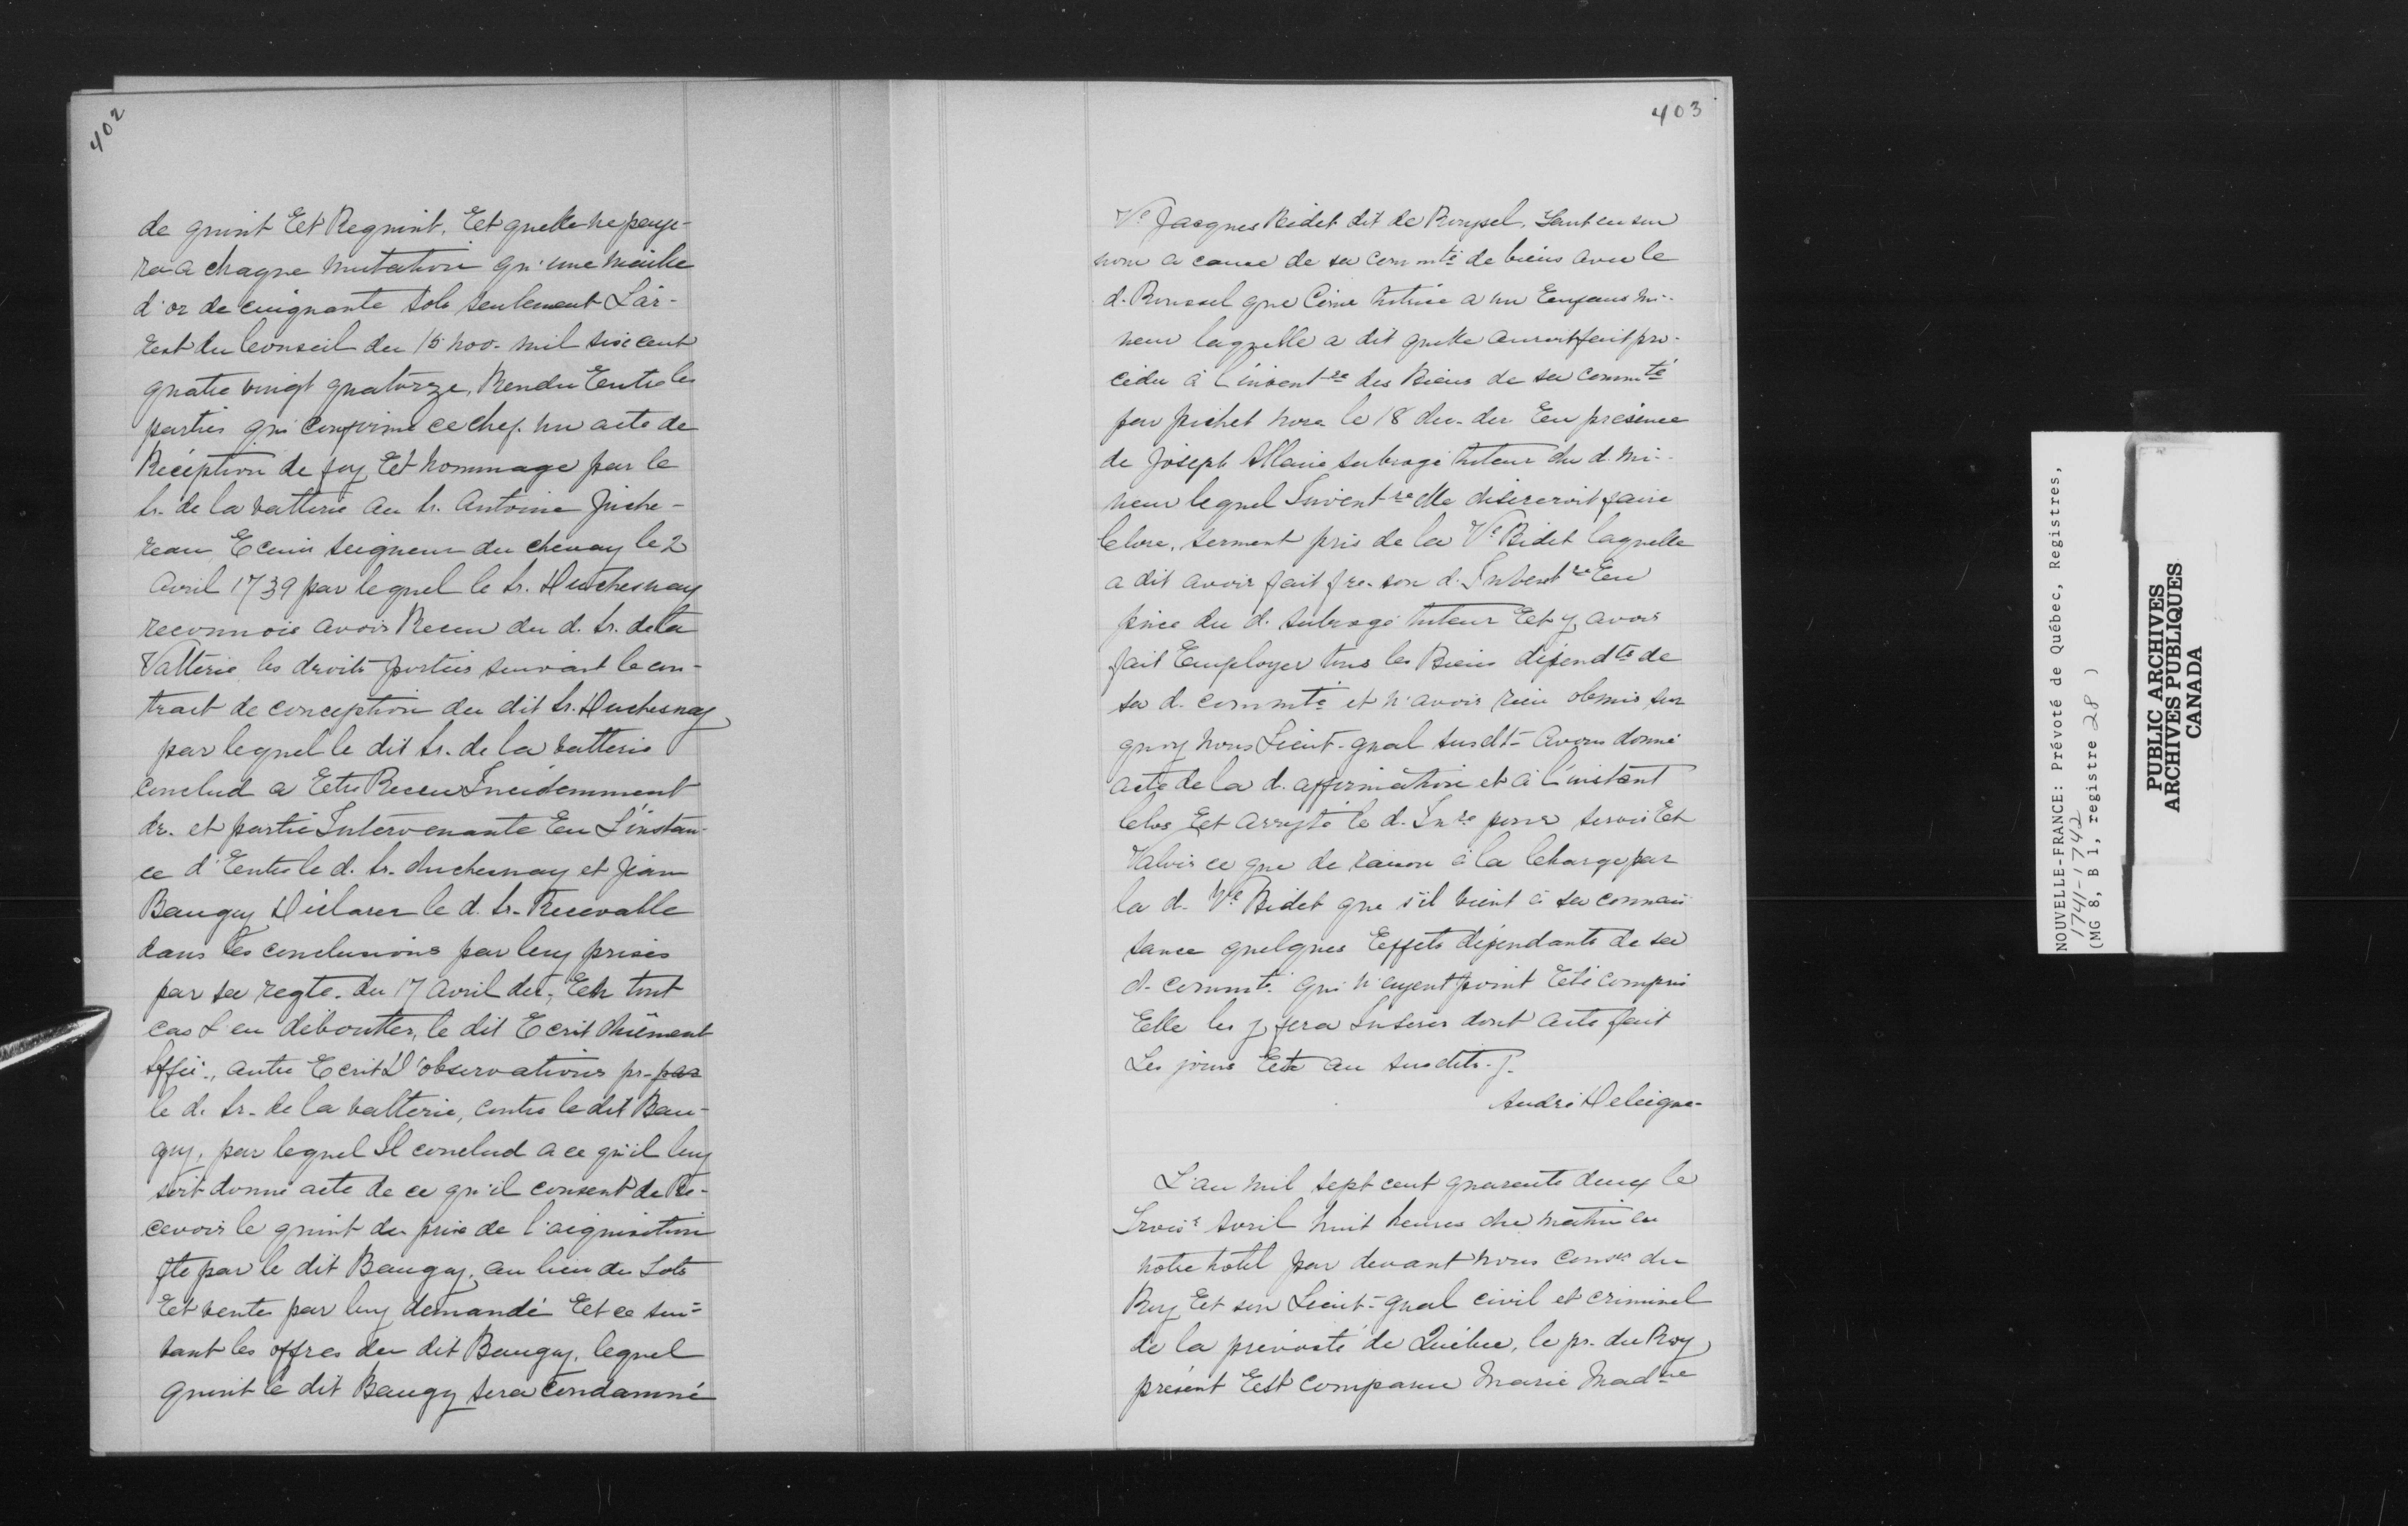 402
de quint Et Requint, Et quelle ne paye-
ra a chaque mutation qu'une maille
d'or de cinquante sols seulement L'ar-
rest du Conseil du 15 nov. mil six cent
quatre vingt quatorze, Rendu Entre les
parties qui confirme ce chef. un acte de
Réception de foy Et hommage par le
Sr. de la valterie au Sr. Antoine Juche-
reau, Ecuier seigneur du chenay le 2
Avril 1739 par lequel le Sr. Duchesnay
reconnois avoir Receu du d. Sr. de la
Valterie les droits portées suivant le con-
tract de conception du dit Sr. Duchesnay
par lequel le dit Sr. de la valterie
conclud a Etre Receu Incidemment
dr. et partie Intervenante En L'instan-
ce d'Entre le d. Sr. duchesnay et Jean
Baugy Déclarer le d. Sr. Recevable
dans les conclusions par luy prises
par sa reqte. du 17 avril der. Et en tout
cas L'en débouter, le dit Ecrit duëment
Siffié., autre Ecrit D'observations pr. par
le d. Sr. de la valterie, contre le dit Bau-
gy, par lequel Il conclud a ce qu'il luy
soit donné acte de ce qu'il consent de Re-
cevoir le quint du prix de l'aiquisition
fte par le dit Baugy, au lieu du Lots
Et ventes par luy demandé Et ce sui-
vant les offres du dit Baugy, lequel
quint le dit Baugy sera condamné
403
Ve Jacques Bidet dit de Roussel, Tant en son
nom a cause de sa commté de biens avec le
d. Roussel que Come tutrice a un Enfans mi-
neur laquelle a dit quelle auroit fait pro-
céder à l'invent re des Biens de sa commté
par pichet nore le 18 du. der En présence
de Joseph Allaire subrogé tuteur du d. mi-
neur lequel Invent re elle désireroit faire
Clore, serment pris de la Ve Bidet laquelle
a dit avoir fait fre. son d. Invent re En
pnce du d. subrogé tuteur Et y avoir
fait Employer tous les Biens dépendts de
sa d. commté et n'avoir rien obmis sur
quoy nous Lieut. gnal susdt. avons donné
acte de la d. affirmation et à l'instant
Clos Et arresté le d. In re pour servir Et
Valoir ce que de raison à la Charge par
la d. Ve Bidet que s'il vient à sa connais
sance quelques Effets dépendants de sa
d. commté. qui n'ayent point Eté compris
Elle les y fera Inserer dont acte fait
Les jours Et an susdits.
André Deleigne.
L'an mil sept cent quarante deux le
Troise avril huit heures du matin en
notre hotel par devant nous Conser du
Roy Et son Lieut. gnal civil et criminel
de la prevosté de Québec, le pr. du Roy
présent Est comparue Marie Mad ne
NOUVELLE-FRANCE: Prévoté de Québec, Registres,
1741-1742
(MG 8, B 1, registre 28 )
PUBLIC ARCHIVES
ARCHIVES PUBLIQUES
CANADA